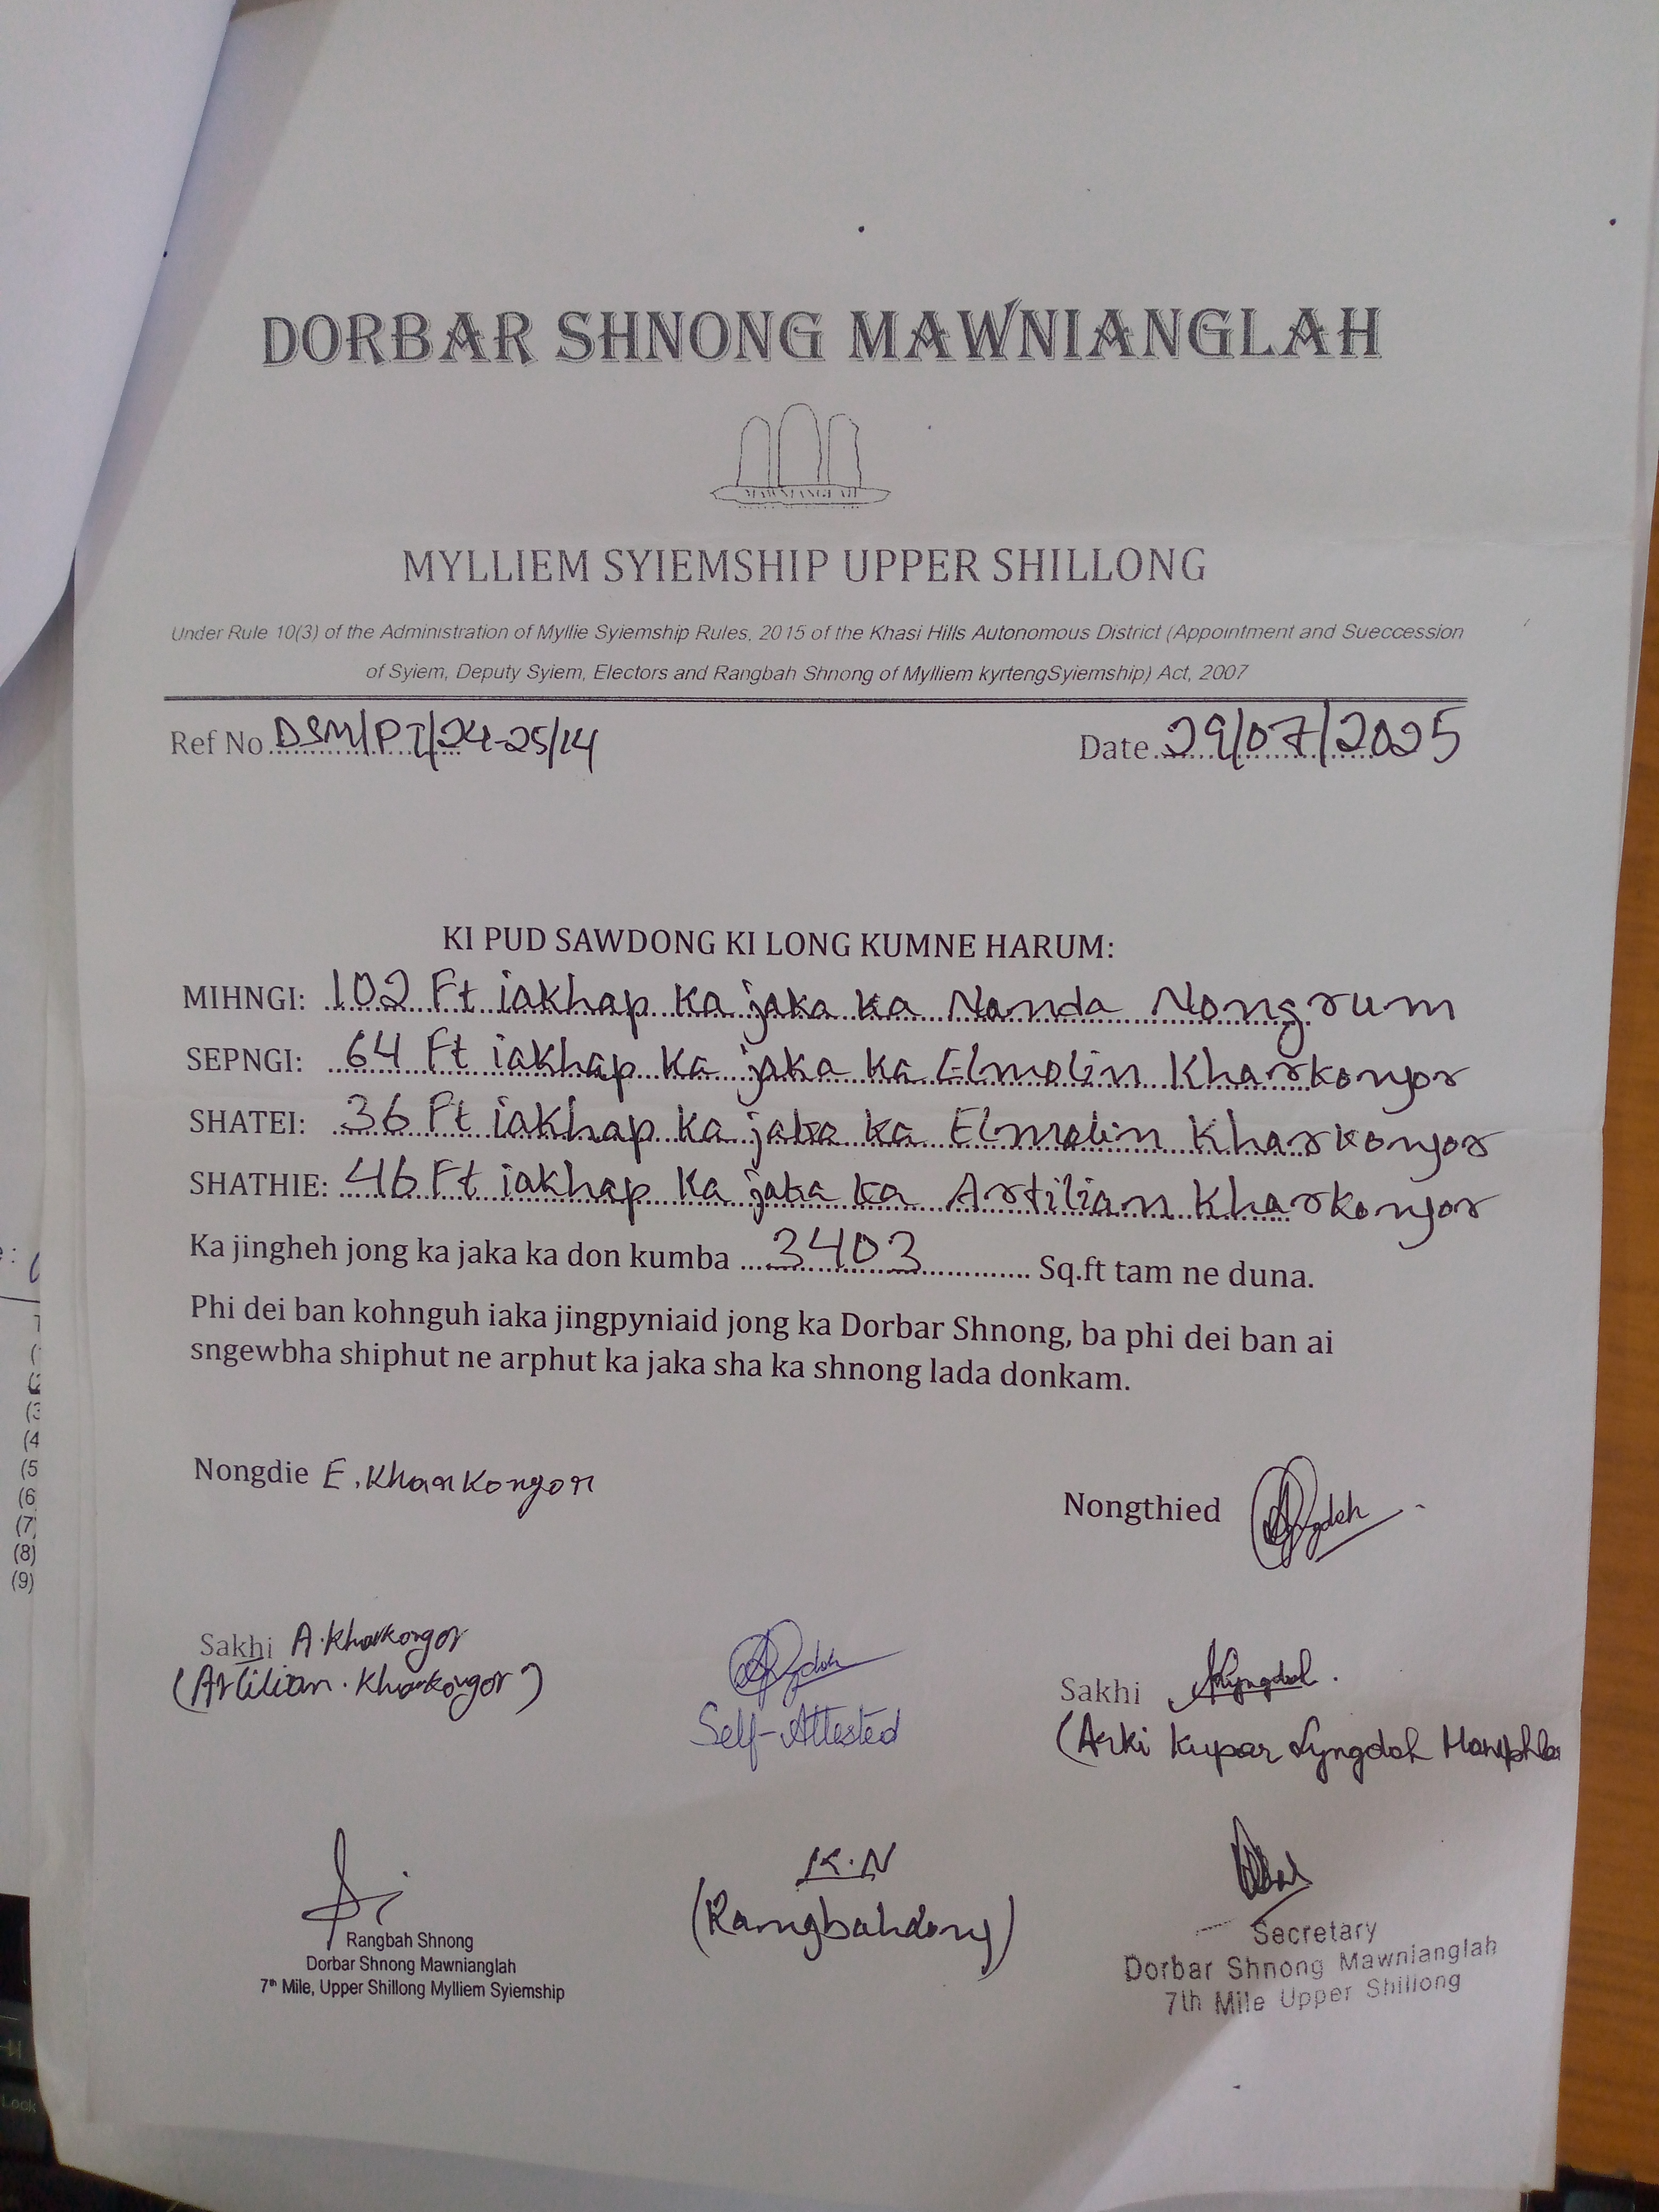 DORBAR SHNONG MAWNIANGLAH
MAWNIANGLAH
MYLLIEM SYIEMSHIP UPPER SHILLONG
Under Rule 10(3) of the Administration of Myllie Syiemship Rules, 2015 of the Khasi Hills Autonomous District (Appointment and Sueccession
of Syiem, Deputy Syiem, Electors and Rangbah Shnong of Mylliem kyrtengSyiemship) Act, 2007
Ref No DSM/PT/24-25/14 Date 29/07/2025
KI PUD SAWDONG KI LONG KUMNE HARUM:
MIHNGI: 102 Ft iakhap ka jaka ka Nanda Nongrum
SEPNGI: 64 Ft iakhap ka jaka ka Elmolin Kharkongor
SHATEI: 36 Ft iakhap ka jaka ka Elmolin Kharkongor
SHATHIE: 46 Ft iakhap ka jaka ka Artilian Kharkongor
Ka jingheh jong ka jaka ka don kumba 3403 Sq.ft tam ne duna.
Phi dei ban kohnguh iaka jingpyniaid jong ka Dorbar Shnong, ba phi dei ban ai
sngewbha shiphut ne arphut ka jaka sha ka shnong lada donkam.
Nongdie E. Kharkongor
Nongthied
Sakhi A. Kharkongor
(Artilian. Kharkongor)
Self-Attested
Sakhi
(Arki Kupar Lyngdoh
K.N
(Rangbahdong)
Rangbah Shnong
Dorbar Shnong Mawnianglah
7th Mile, Upper Shillong Mylliem Syiemship
Secretary
Dorbar Shnong Mawnianglah
7th Mile Upper Shillong
(4
(5
(6
(7
(8)
(9)